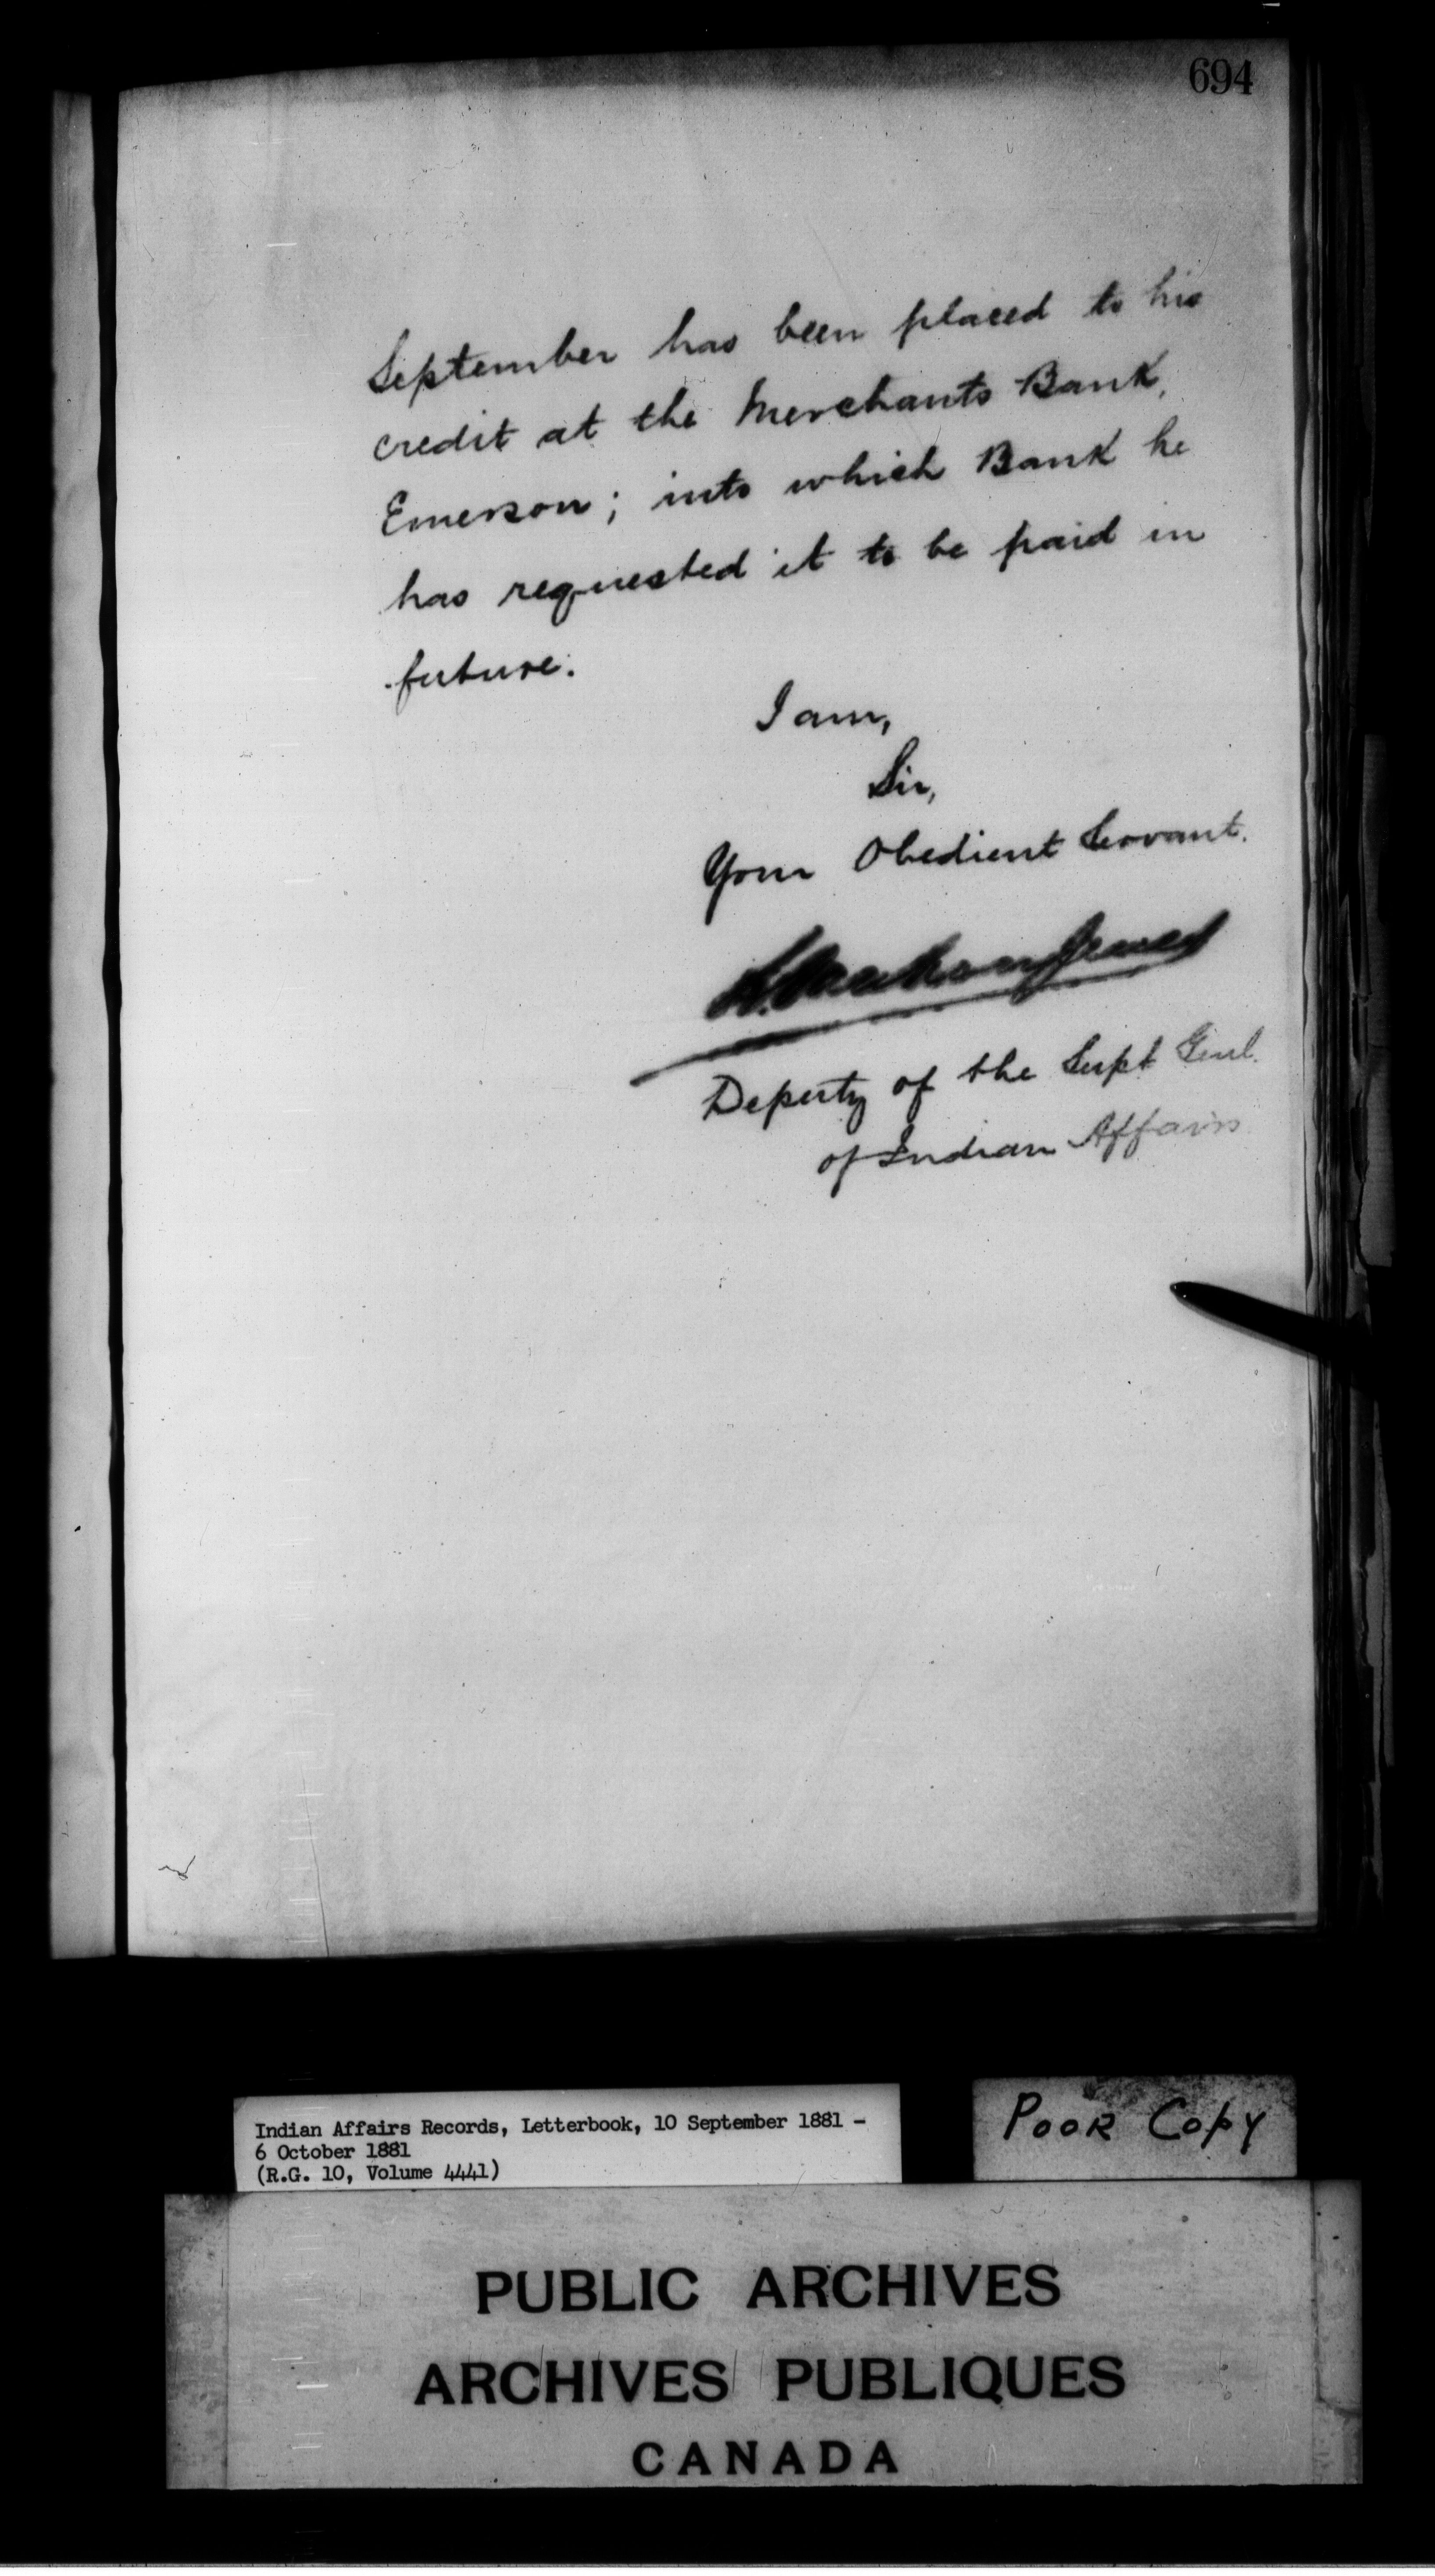 694
September has been placed to his
credit at the Merchants Bank,
Emerson; into which Bank he
has requested it to be paid in
future.
I am,
Sir,
Your Obedient Servant.
Deputy of the Supt Genl.
of Indian Affairs
Indian Affairs Records, Letterbook, 10 September 1881 -
6 October 1881
(R.G. 10, Volume 4441)
POOR COPY
PUBLIC ARCHIVES
ARCHIVES PUBLIQUES
CANADA